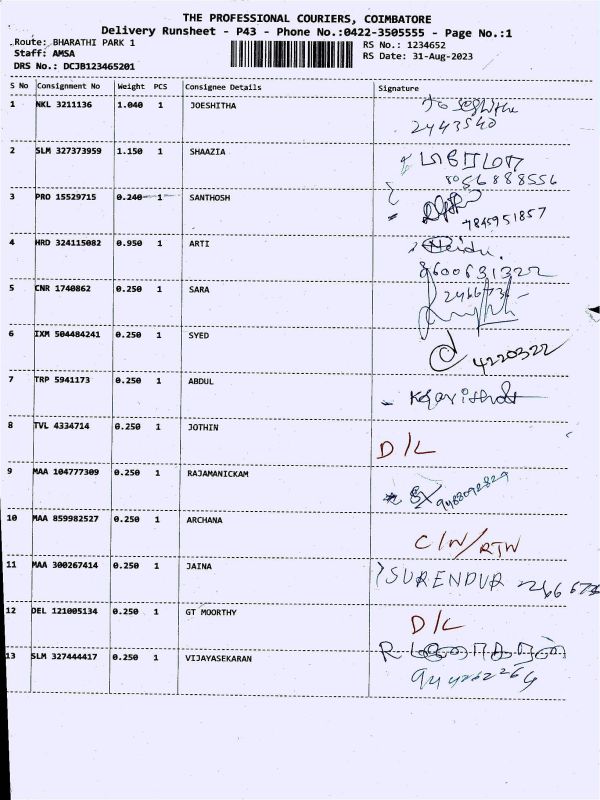 THE PROFESSIONAL COURIERS, COIMBATORE
Delivery Runsheet - P43 - Phone No.:0422-3505555 - Page No.:1
Route: BHARATHI PARK 1 RS No.: 1234652
Staff: AMSA RS Date: 31-Aug-2023
DRS No.: DCJB123465201
S No Consignment No Weight PCS Consignee Details Signature
1 NKL 3211136 1.040 1 JOESHITHA
2443540
2 SLM 327373959 1.150 1 SHAAZIA
8056888556
3 PRO 15529715 0.240 1 SANTHOSH
7845951857
4 HRD 324115082 0.950 1 ARTI
8600631322
5 CNR 1740862 0.250 1 SARA
6 IXM 504484241 0.250 1 SYED
4220322
7 TRP 5941173 0.250 1 ABDUL
8 TVL 4334714 0.250 1 JOTHIN
D/L
9 MAA 104777309 0.250 1 RAJAMANICKAM
10 MAA 859982527 0.250 1 ARCHANA
C/N/RTN
11 MAA 300267414 0.250 1 JAINA
SURENDUR
12 DEL 121005134 0.250 1 GT MOORTHY
D/L
13 SLM 327444417 0.250 1 VIJAYASEKARAN